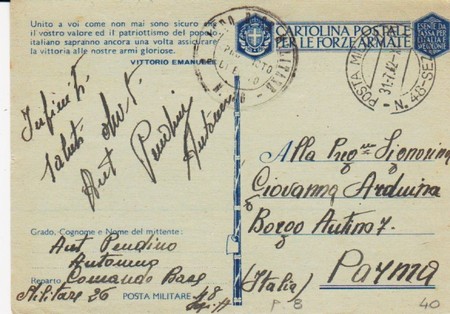 Unito a voi come non mai sono sicuro che
il vostro valore ed il patriottismo del popolo
italiano sapranno ancora una volta assicurare
la vittoria alle nostre armi gloriose.
VITTORIO EMANUELE
CARTOLINA POSTALE
PER LE FORZE ARMATE
ESENTE DA
TASSA PER
L'ITALIA E
POSTA
31-7-42-X
N. 48-SEZ
Infiniti
saluti
Aut Pendino
Grado, Cognome e Nome del mittente:
Aut Pendino
Antonino
Reparto Comando Base
Militare 26
POSTA MILITARE 48
Alla Signorina
Giovanna Arduina
Borgo 7.
(Italia) Parma
P. B
40